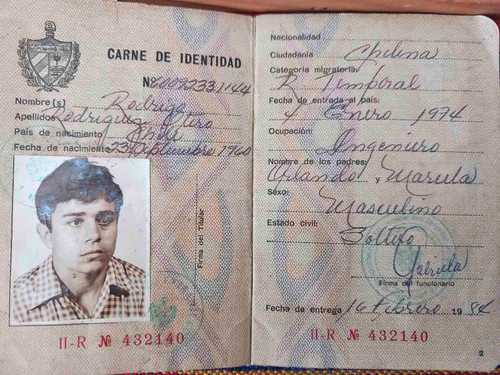 CARNE DE IDENTIDAD
Nº 60092331144
Nombre(s) Rodrigo
Apellidos Rodriguez Otero
País de nacimiento Chile
Fecha de nacimiento 23 Septiembre 1960
Firma del Titular
II-R Nº 432140
Nacionalidad
Ciudadanía Chilena
Categoría migratoria:
R Temporal
Fecha de entrada al país:
4 Enero 1974
Ocupación:
Ingeniero
Nombre de los padres:
Orlando y Mariela
Sexo:
Masculino
Estado civil:
Soltero
Gabriela
Firma del funcionario
Fecha de entrega 16 Febrero 1984
II-R Nº 432140
2